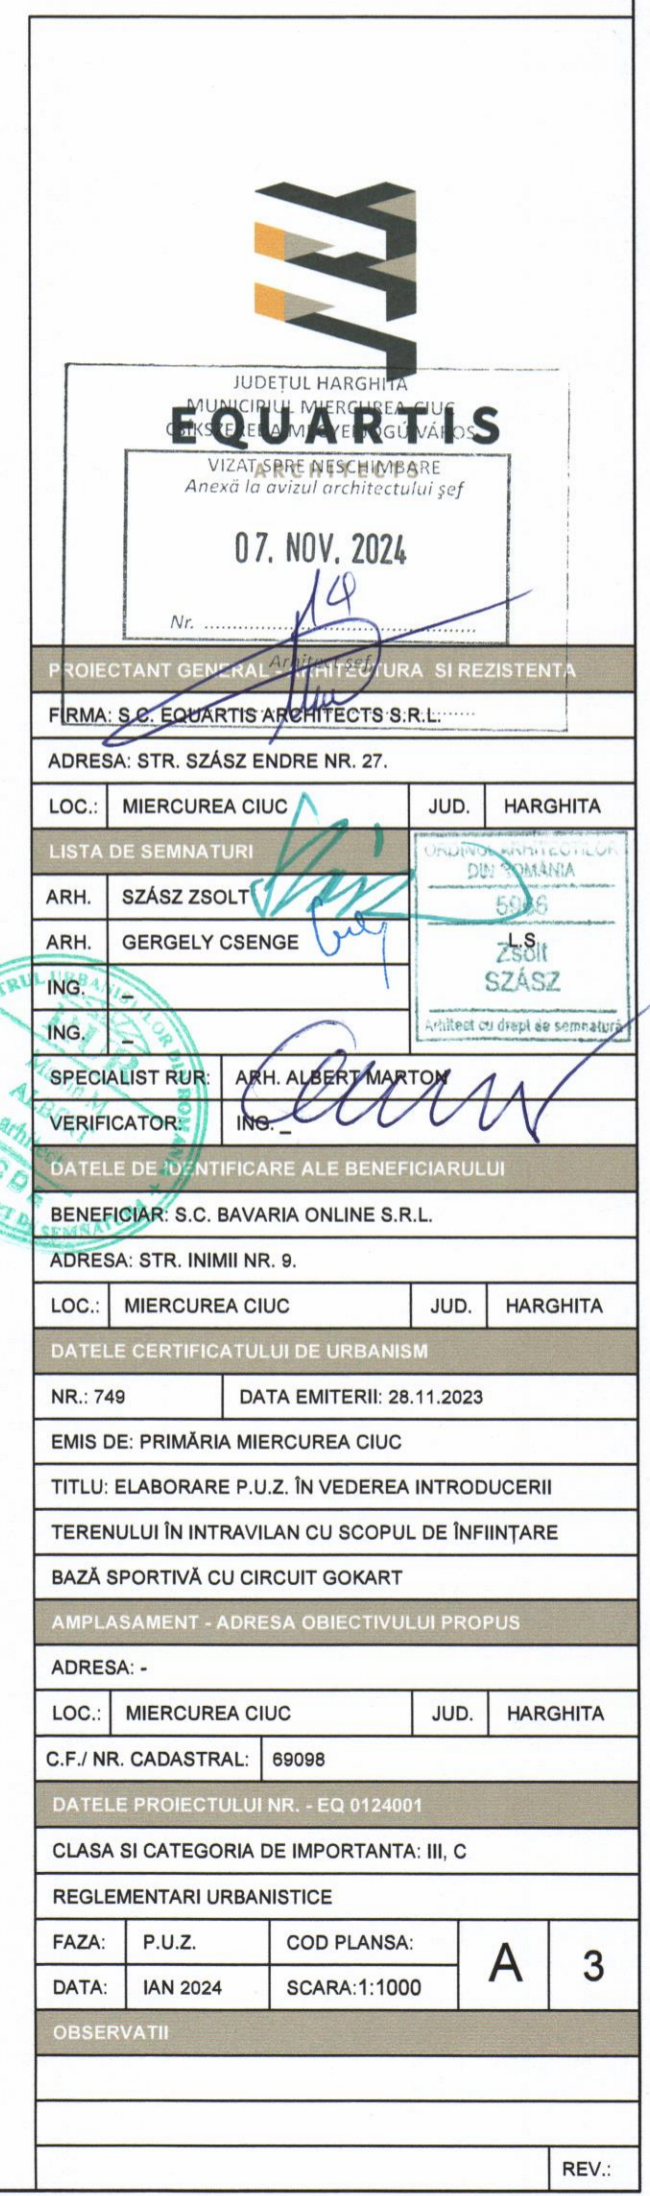 JUDEȚUL HARGHITA
MUNICIPIUL MIERCUREA CIUC
EQUARTIS
ARCHITECTS
VIZAT SPRE NESCHIMBARE
Anexă la avizul architectului șef
07. NOV. 2024
Nr. 19
Arhitect șef
PROIECTANT GENERAL - ARHITECTURA SI REZISTENTA
FIRMA: S.C. EQUARTIS ARCHITECTS S.R.L.
ADRESA: STR. SZÁSZ ENDRE NR. 27.
LOC.: MIERCUREA CIUC JUD. HARGHITA
LISTA DE SEMNATURI
ORDINUL ARHITECTILOR
DIN ROMÂNIA
ARH. SZÁSZ ZSOLT
5966
ARH. GERGELY CSENGE
L.S
Zsolt
SZÁSZ
Arhitect cu drept de semnatură
ING. _
ING. _
SPECIALIST RUR: ARH. ALBERT MARTON
VERIFICATOR: ING. _
DATELE DE IDENTIFICARE ALE BENEFICIARULUI
BENEFICIAR: S.C. BAVARIA ONLINE S.R.L.
ADRESA: STR. INIMII NR. 9.
LOC.: MIERCUREA CIUC JUD. HARGHITA
DATELE CERTIFICATULUI DE URBANISM
NR.: 749 DATA EMITERII: 28.11.2023
EMIS DE: PRIMĂRIA MIERCUREA CIUC
TITLU: ELABORARE P.U.Z. ÎN VEDEREA INTRODUCERII
TERENULUI ÎN INTRAVILAN CU SCOPUL DE ÎNFIINȚARE
BAZĂ SPORTIVĂ CU CIRCUIT GOKART
AMPLASAMENT - ADRESA OBIECTIVULUI PROPUS
ADRESA: -
LOC.: MIERCUREA CIUC JUD. HARGHITA
C.F./ NR. CADASTRAL: 69098
DATELE PROIECTULUI NR. - EQ 0124001
CLASA SI CATEGORIA DE IMPORTANTA: III, C
REGLEMENTARI URBANISTICE
FAZA: P.U.Z. COD PLANSA: A 3
DATA: IAN 2024 SCARA:1:1000
OBSERVATII
REV.: